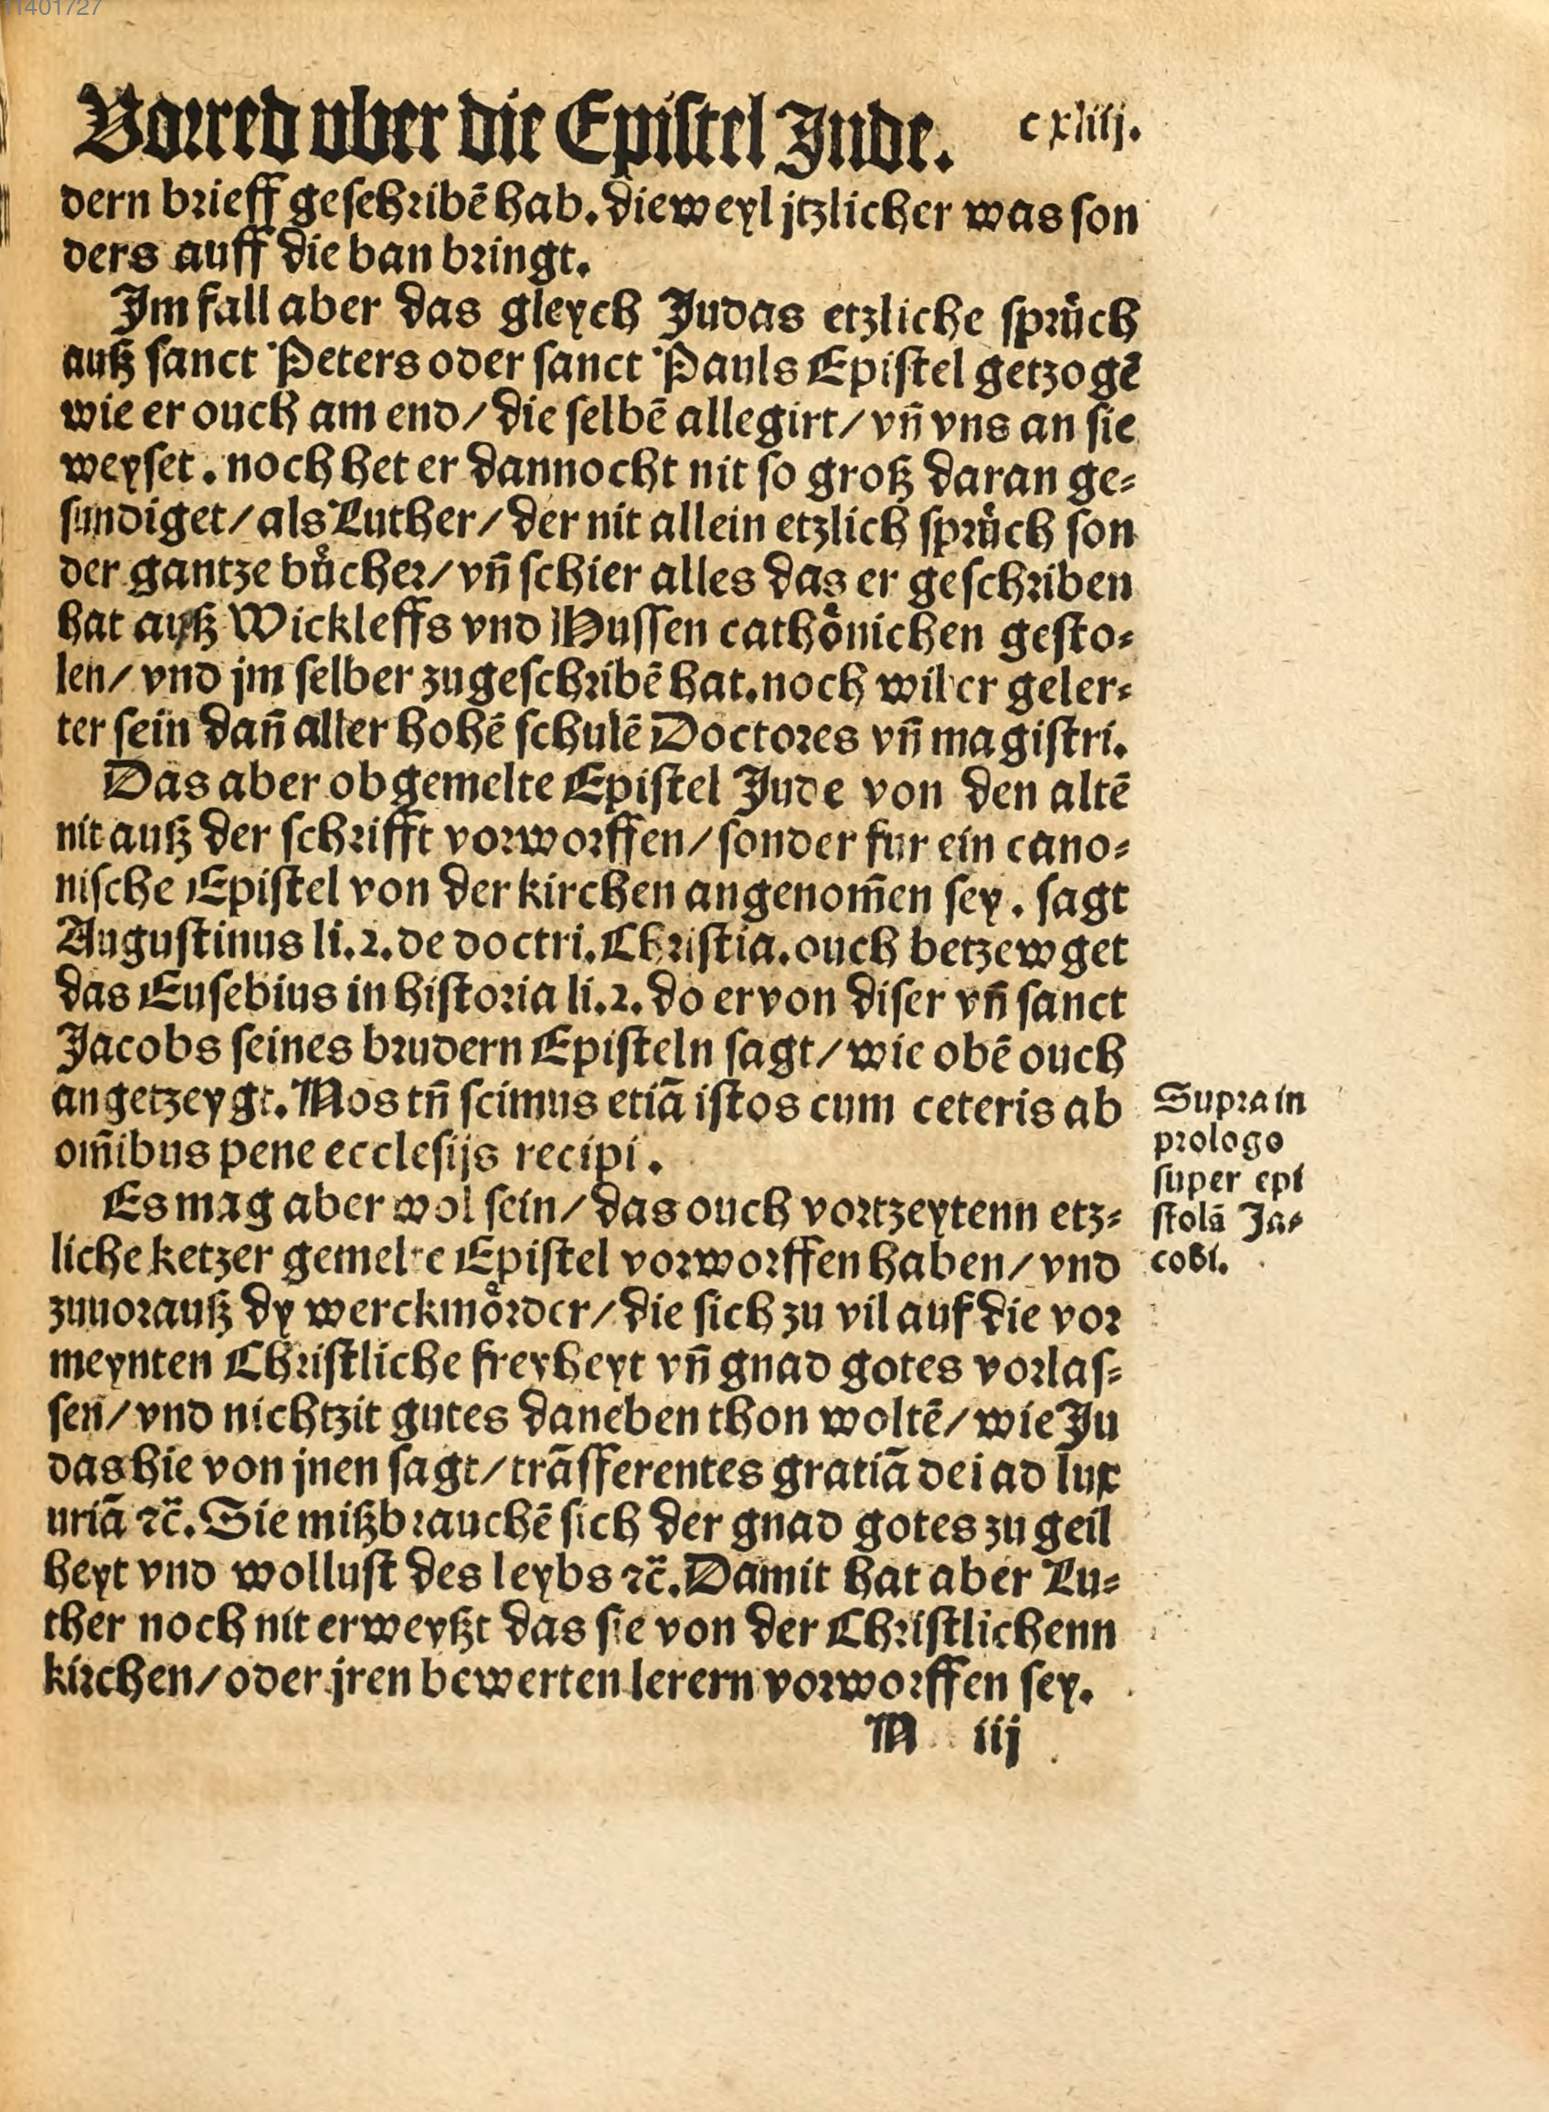 11401727
Vorred uber die Epistel Jude. cxliij.
dern brieff geschribē hab. dieweyl jtzlicher was son
ders auff die ban bringt.
Im fall aber das gleych Judas etzliche sprůch
auß sanct Peters oder sanct Pauls Epistel getzogē
wie er ouch am end/ die selbē allegirt/ vñ vns an sie
weyset. noch het er dannocht nit so groß daran ge⸗
sundiget/ als Luther/ der nit allein etzlich sprůch son
der gantze bůcher/ vñ schier alles das er geschriben
hat auß Wickleffs vnd Hussen cathönichen gesto⸗
len/ vnd jm selber zugeschribē hat. noch wil er geler⸗
ter sein dañ aller hohē schulē Doctores vñ magistri.
Das aber obgemelte Epistel Jude von den altē
nit auß der schrifft vorworffen/ sonder fur ein cano⸗
nische Epistel von der kirchen angenom̄en sey. sagt
Augustinus li. 2. de doctri. Christia. ouch betzewget
das Eusebius in historia li. 2. do er von diser vñ sanct
Jacobs seines brudern Episteln sagt/ wie obē ouch
angetzeygt. Nos tñ scimus etiā istos cum ceteris ab
om̄ibus pene ecclesijs recipi.
Es mag aber wol sein/ das ouch vortzeytenn etz⸗
liche ketzer gemelte Epistel vorworffen haben/ vnd
zuuorauß dy werckmörder/ die sich zu vil auf die vor
meynten Christliche freyheyt vñ gnad gotes vorlas⸗
sen/ vnd nichtzit gutes daneben thon woltē/ wie Ju
das hie von jnen sagt/ trāsferentes gratiā dei ad lux
uriā ⁊c̄. Sie mißbrauchē sich der gnad gotes zu geil
heyt vnd wollust des leybs ⁊c̄. Damit hat aber Lu⸗
ther noch nit erweyßt das sie von der Christlichenn
kirchen/ oder jren bewerten lerern vorworffen sey.
N iij
Supra in
prologo
super epi
stolā Ja⸗
cobi.